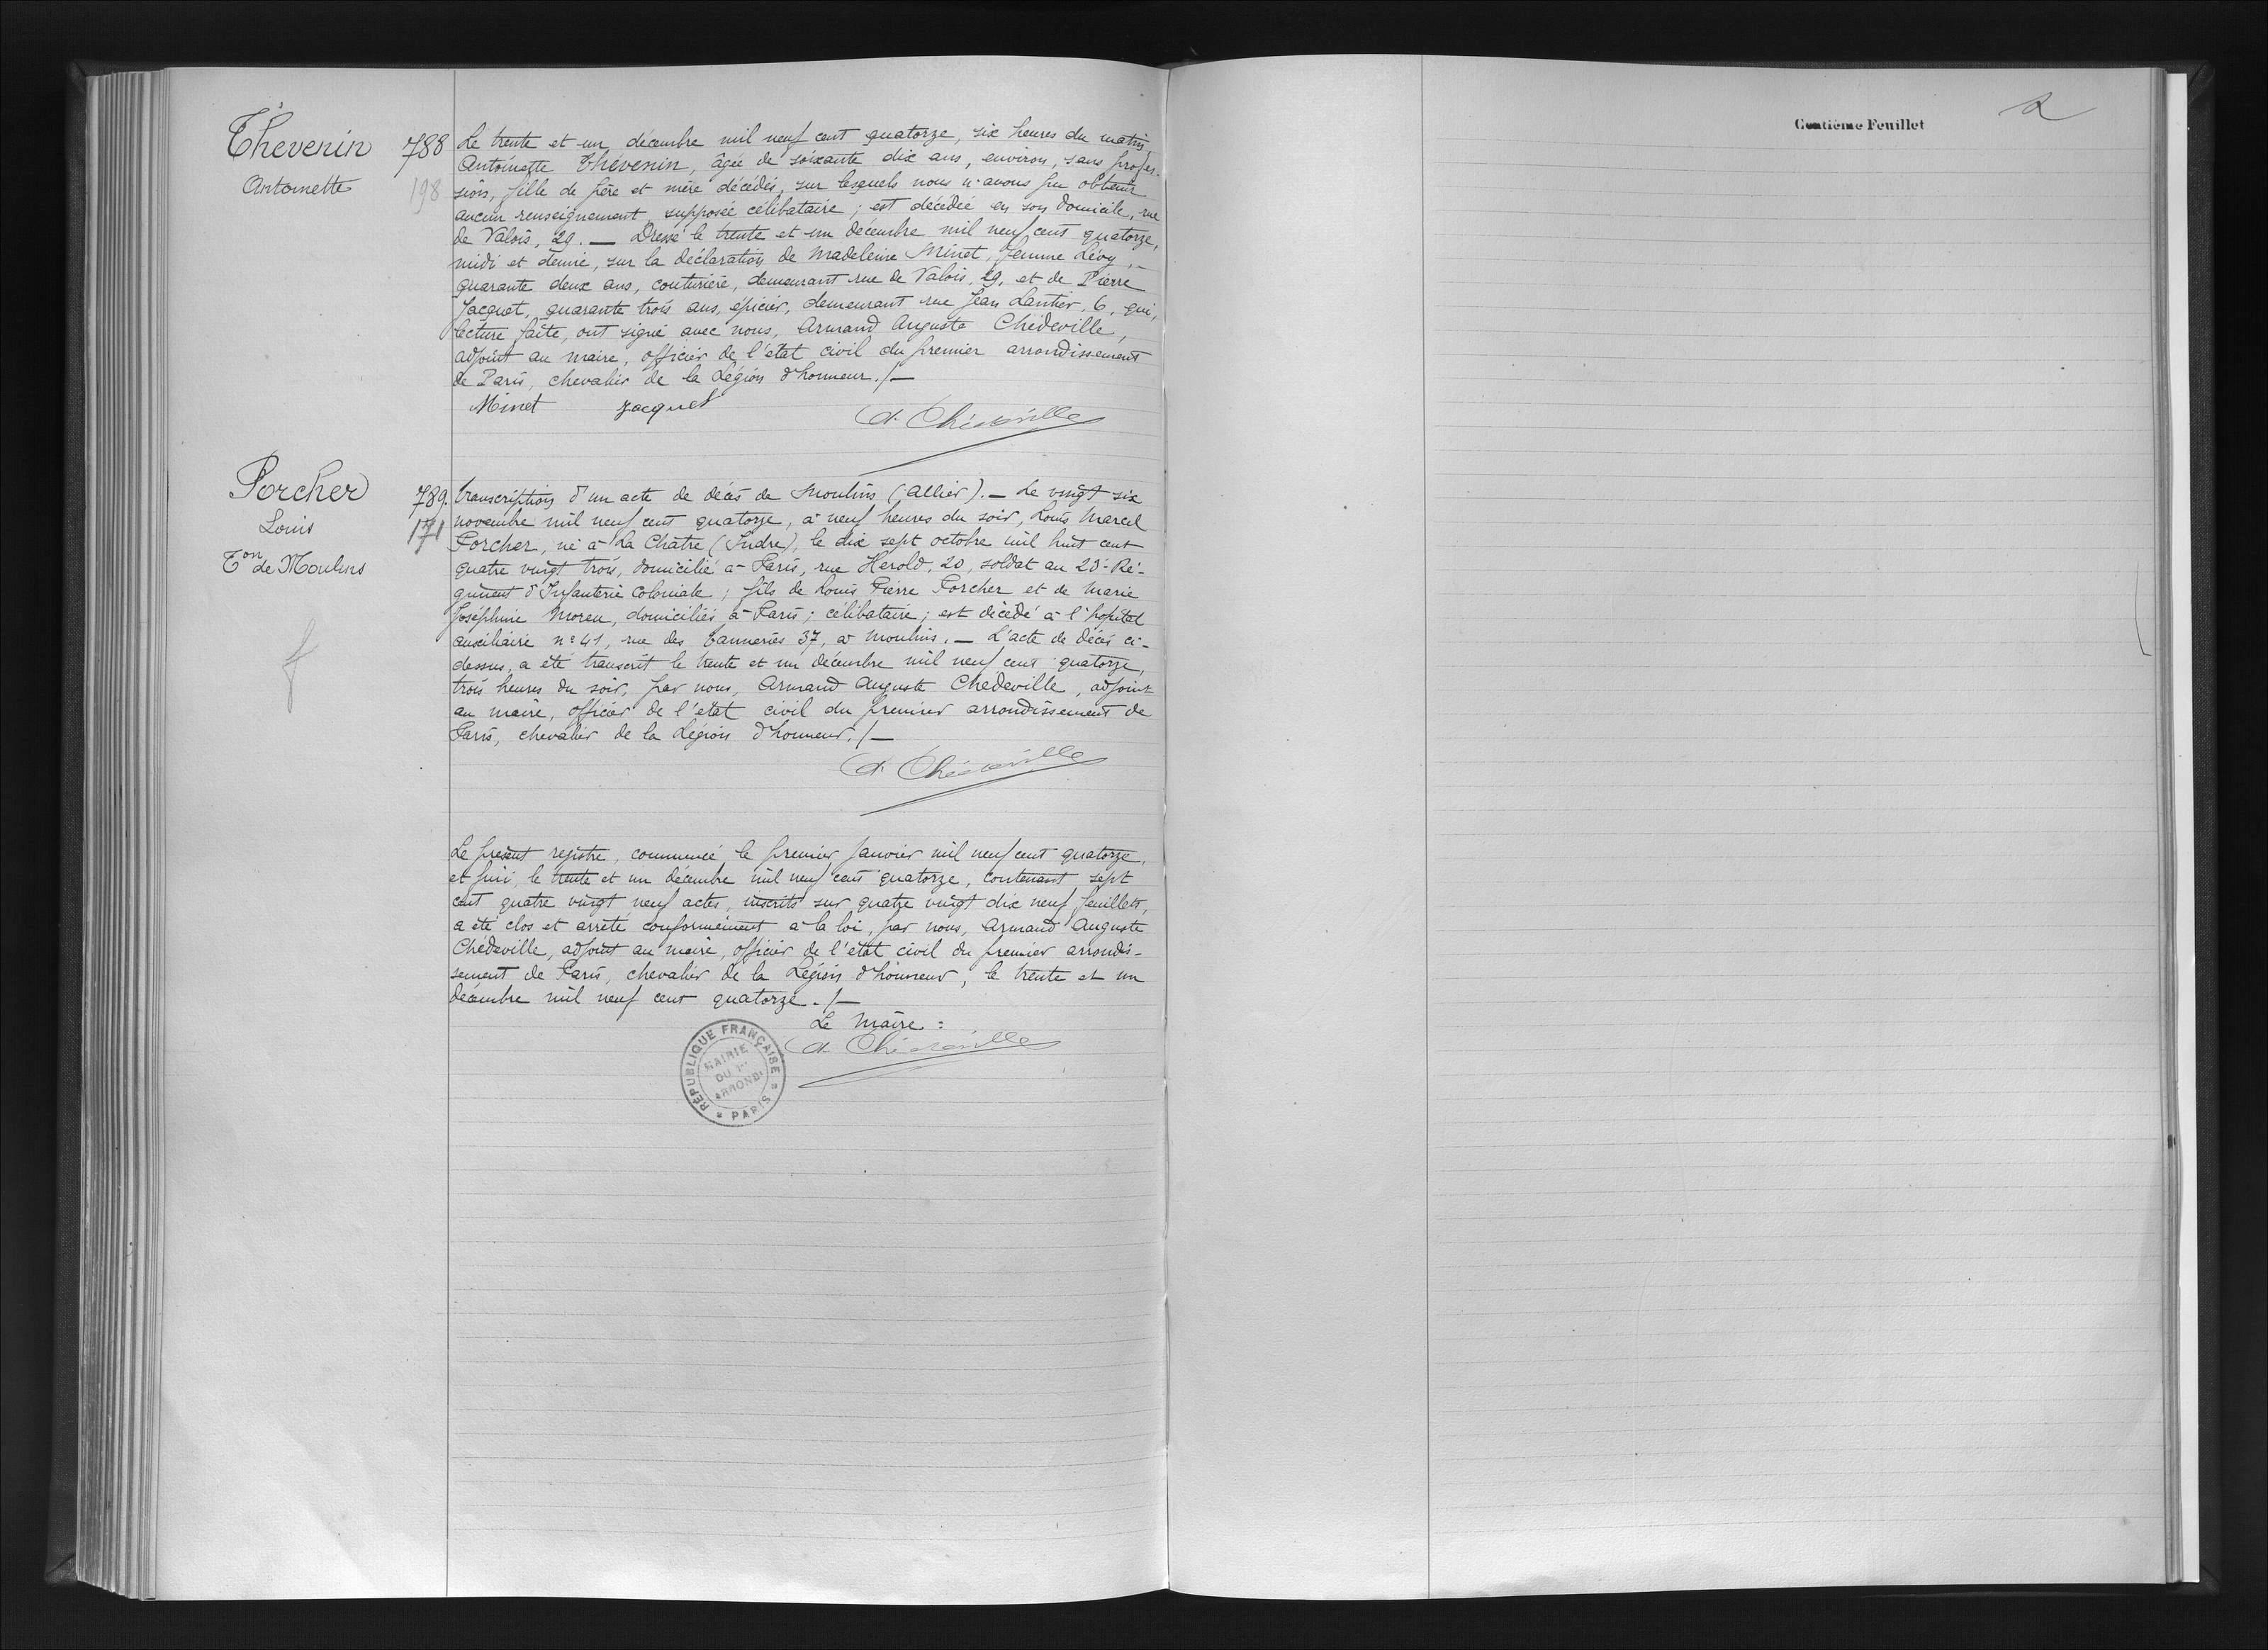 Thévenin
Antoinette
788
198
Le trente et un décembre mil neuf cent quatorze, six heures du matin,
Antoinette Thévenin, âgée de soixante dix ans, environ, sans profes-
sion, fille de père et mère décédés, sur lesquels nous n'avons pu obtenir
aucun renseignement, supposée célibataire; est décédée en son domicile, rue
de Valois, 29. — Dressé le trente et un décembre mil neuf cent quatorze,
midi et demie, sur la déclaration de Madeleine Minet, femme Lévy,
quarante deux ans, couturière, demeurant rue de Valois, 29, et de Pierre
Jacquet, quarante trois ans, épicier, demeurant rue Jean Lantier, 6, qui,
lecture faite, ont signé avec nous, Armand Auguste Chédeville,
adjoint au maire, officier de l'état civil du premier arrondissement
de Paris, chevalier de la Légion d'honneur./—
Minet Jacquet
A. Chédeville
Porcher
Louis
Ton de Moulins
789.
171
transcription d'un acte de décès de Moulins (Allier). — Le vingt six
novembre mil neuf cent quatorze, à neuf heures du soir, Louis Marcel
Porcher, né à La Châtre (Indre), le dix sept octobre mil huit cent
quatre vingt trois, domicilié à Paris, rue Herold, 20, soldat au 23e Ré-
giment d'Infanterie Coloniale; fils de Louis Pierre Porcher et de Marie
Joséphine Moreu, domiciliés à Paris; célibataire; est décédé à l'hopital
auxiliaire n° 41, rue des Tanneries 37, à Moulins. — L'acte de décès ci-
dessus, a été transcrit le trente et un décembre mil neuf cent quatorze,
trois heures du soir, par nous, Armand Auguste Chédeville, adjoint
au maire, officier de l'état civil du premier arrondissement de
Paris, chevalier de la Légion d'honneur./—
A. Chédeville
Le présent registre, commencé le premier janvier mil neuf cent quatorze,
et fini, le trente et un décembre mil neuf cent quatorze, contenant sept
cent quatre vingt neuf actes, inscrits sur quatre vingt dix neuf feuillets,
a été clos et arrêté conformément à la loi, par nous, Armand Auguste
Chédeville, adjoint au maire, officier de l'état civil du premier arrondis-
sement de Paris, chevalier de la Légion d'honneur, le trente et un
décembre mil neuf cent quatorze./—
Le Maire:
A. Chédeville
RÉPUBLIQUE FRANÇAISE
MAIRIE
DU 1er
ARRONDt
* PARIS *
Centième Feuillet